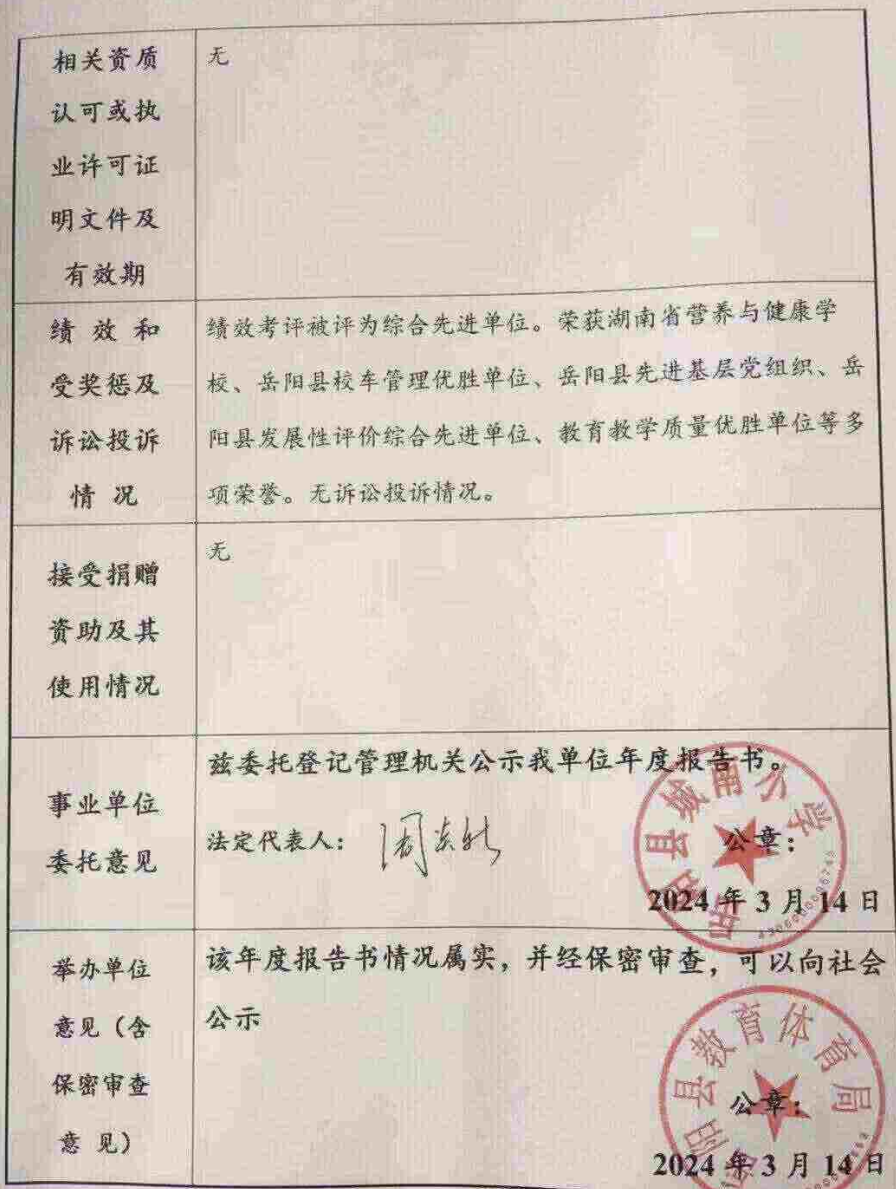 相关资质
认可或执
业许可证
明文件及
有效期
无
绩 效 和
受奖惩及
诉讼投诉
情 况
绩效考评被评为综合先进单位。荣获湖南省营养与健康学
校、岳阳县校车管理优胜单位、岳阳县先进基层党组织、岳
阳县发展性评价综合先进单位、教育教学质量优胜单位等多
项荣誉。无诉讼投诉情况。
接受捐赠
资助及其
使用情况
无
事业单位
委托意见
兹委托登记管理机关公示我单位年度报告书。
法定代表人：
公章：
2024 年 3 月 14 日
岳阳县城南小学
举办单位
意见（含
保密审查
意 见）
该年度报告书情况属实，并经保密审查，可以向社会
公示
公章：
2024 年 3 月 14 日
岳阳县教育体育局